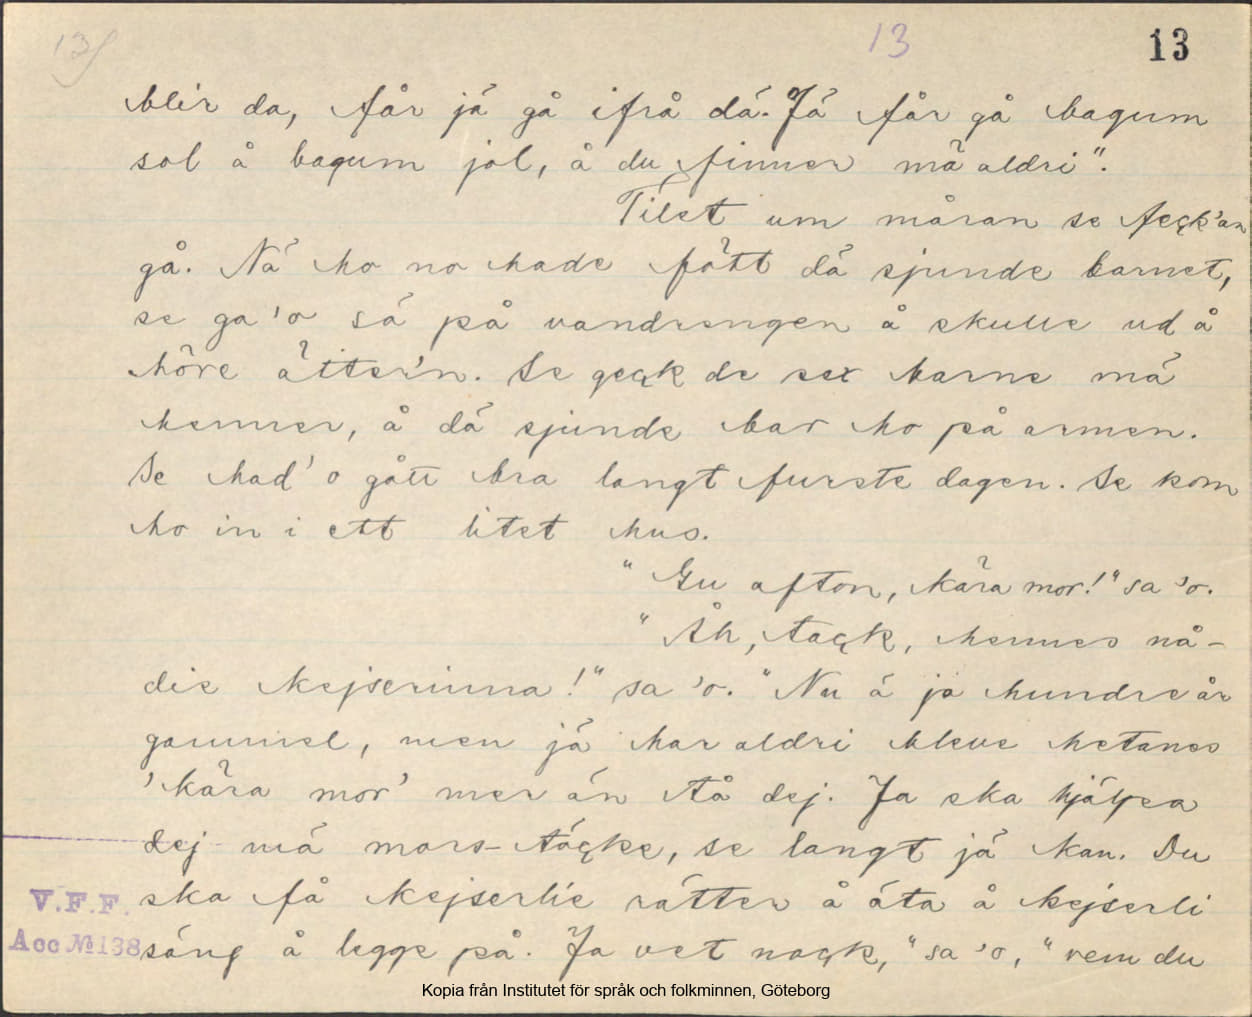 13
13
13
blir da, får já gå ifrå dá. Já får gå bagum
sol å bagum jol, å du finner mä aldri".
Tilet um måran se feck'an
gå. Ná ho no hade fött dá sjunde barnet,
se ga 'o sá på vandrengen å skulle ud å
höre ätter'n. Se geck de sex barne má
henner, å dá sjunde bar ho på armen.
Se had' o gått bra langt furste dagen. Se kom
ho in i ett litet hus.
"Gu afton, kära mor!" sa 'o.
"Åh, tack, hennes nå-
die kejserinna!" sa 'o. "Nu á ja hundre år
gammel, men já har aldri bleve hetanes
'kära mor' mer án tå dej. Ja ska hjálpa
dej má mors-täcke, se langt já kan. Du
ska få kejserlie rätter å äta å kejserli
sáng å legge på. Ja vet nock," sa 'o, "vem du
V.F.F.
Acc № 138
Kopia från Institutet för språk och folkminnen, Göteborg